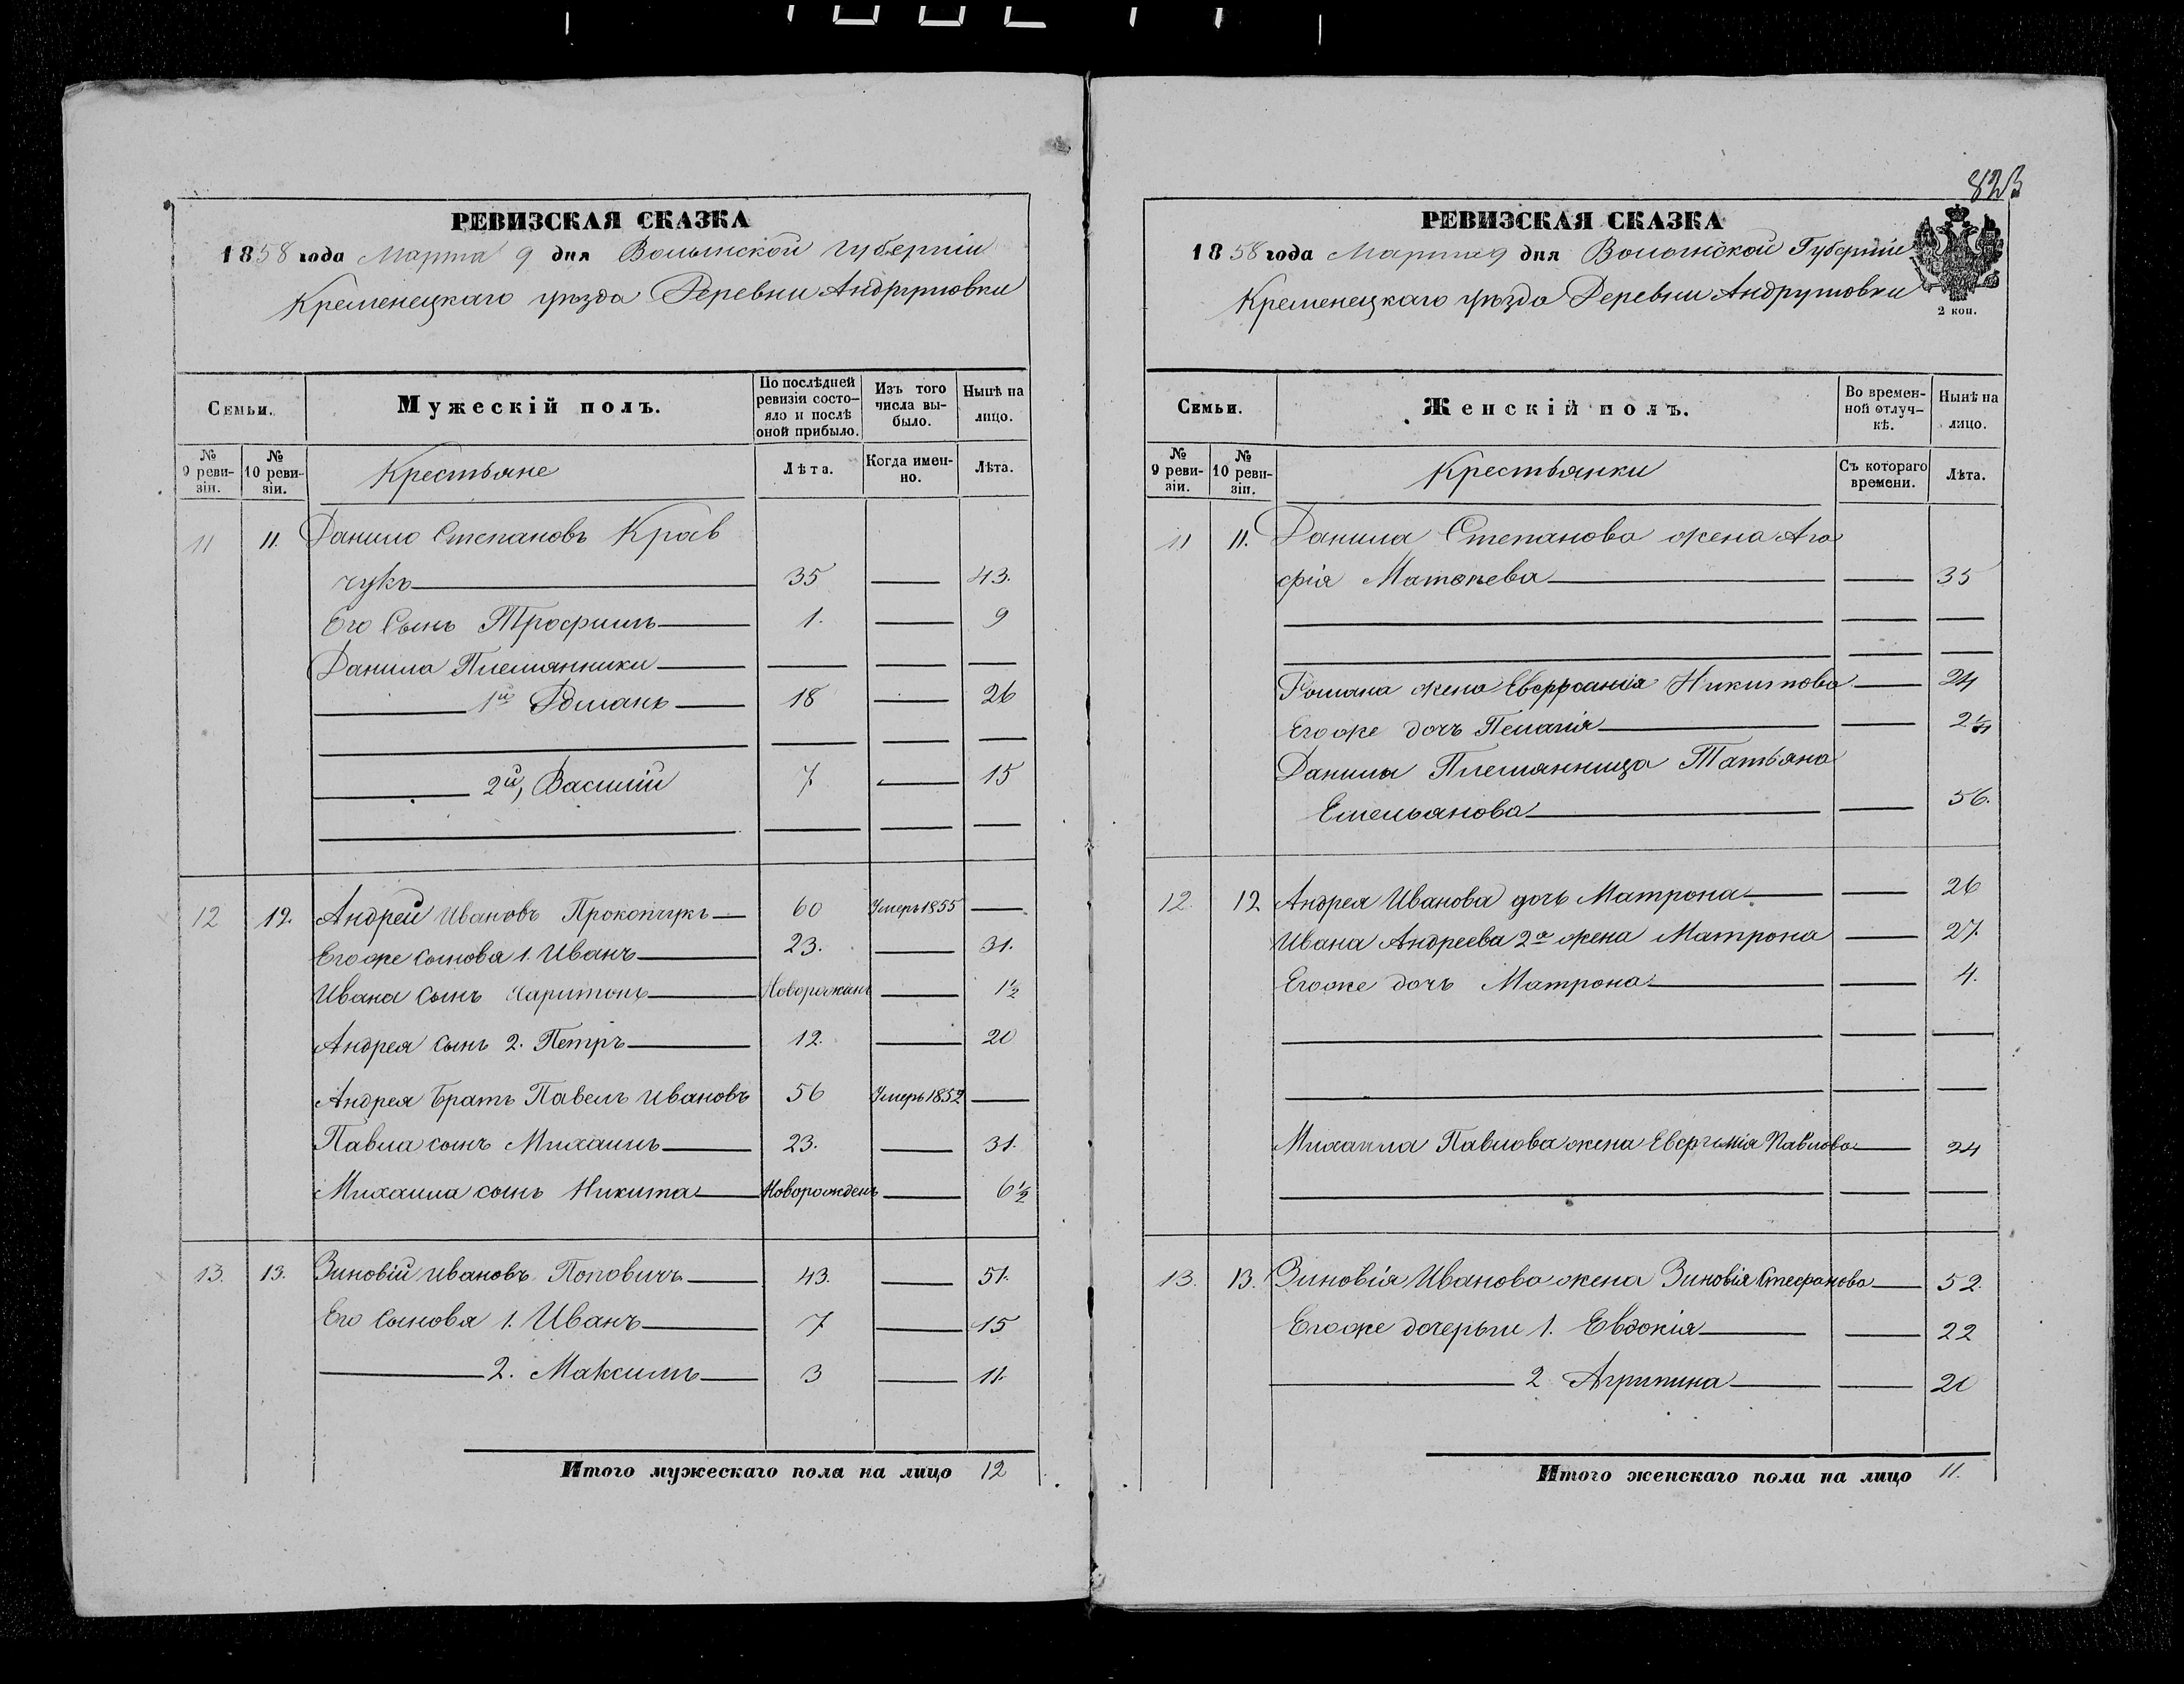 РЕВИЗСКАЯ СКАЗКА
1858 года Марта 9 дня Волынской Губерніи
Кременецкаго уѣзда Деревни Андрутовки
Семьи.
Мужескій полъ.
По послѣдней ревизіи состояло и послѣ оной прибыло.
Изъ того числа выбыло.
Нынѣ на лицо.
№ 9 ревизіи.
№ 10 ревизіи.
Крестьяне
Лѣта.
Когда именно.
Лѣта.
11 11. Данило Степановъ Крав
чукъ 35 — 43.
Его Сынъ Трофимъ 1. — 9
Данила Племянники — — —
1й Романъ 18 — 26
2й, Василій 7 — 15
12 12. Андрей Ивановъ Прокопчукъ 60 Умеръ 1855 —
Егоже сыновя 1. Иванъ 23. — 31.
Ивана сынъ Харитонъ Новорожденъ — 1½
Андрея сынъ 2. Петръ 12. — 20
Андрея братъ Павелъ Ивановъ 56 Умеръ 1852 —
Павла сынъ Михаилъ 23. — 31.
Михаила сынъ Никита Новорожденъ — 6½
13. 13. Зиновій Ивановъ Поповичъ 43. — 51.
Его Сыновя 1. Иванъ 7 — 15
2. Максимъ 3 — 11.
Итого мужескаго пола на лицо 12
823
РЕВИЗСКАЯ СКАЗКА
1858 года Марта 9 дня Волынской Губерніи
Кременецкаго уѣзда Деревни Андрутовки
2 коп.
Семьи.
Женскій полъ.
Во временной отлучкѣ.
Нынѣ на лицо.
№ 9 ревизіи.
№ 10 ревизіи.
Крестьянки
Съ котораго времени.
Лѣта.
11 11. Данила Степанова жена Ага
фія Матвѣева — 35
Романа жена Никитова — 24
Егоже дочь Пелагія — 2
Данилы Племянница Татьяна
Емельянова — 56.
12. 12 Андрея Иванова дочь Матрона — 26
Ивана Андреева 2а жена Матрона — 27.
Егоже дочь Матрона — 4.
Михаила Павлова жена Павлова — 24
13. 13. Зиновія Иванова жена Зиновія Стефанова — 52.
Егоже дочеры 1. Евдокія — 22
2 Агрипина — 20
Итого женскаго пола на лицо 11.